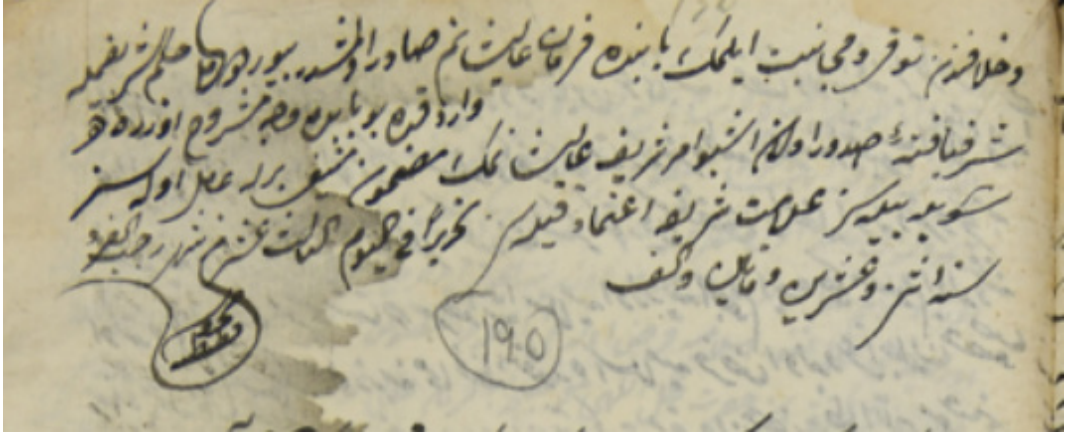 و خلافندن توقی و مجانبت ایلمك بابنده فرمان عالیشانم صادر اولمشدر بیوردم كه حكم شریفمله
وارد قده بو بابده وجه مشروح اوزره
شرفیافتهٔ صدور اولان اشبو امر شریف عالیشانمك مضمون برله عمل اوله سز
شویله بیله سز علامت شریفه اعتماد قیله سز تحریراً فی الیوم الثالث عشر من شهر رجب
سنه اثنی و عشرین و مایه و الف